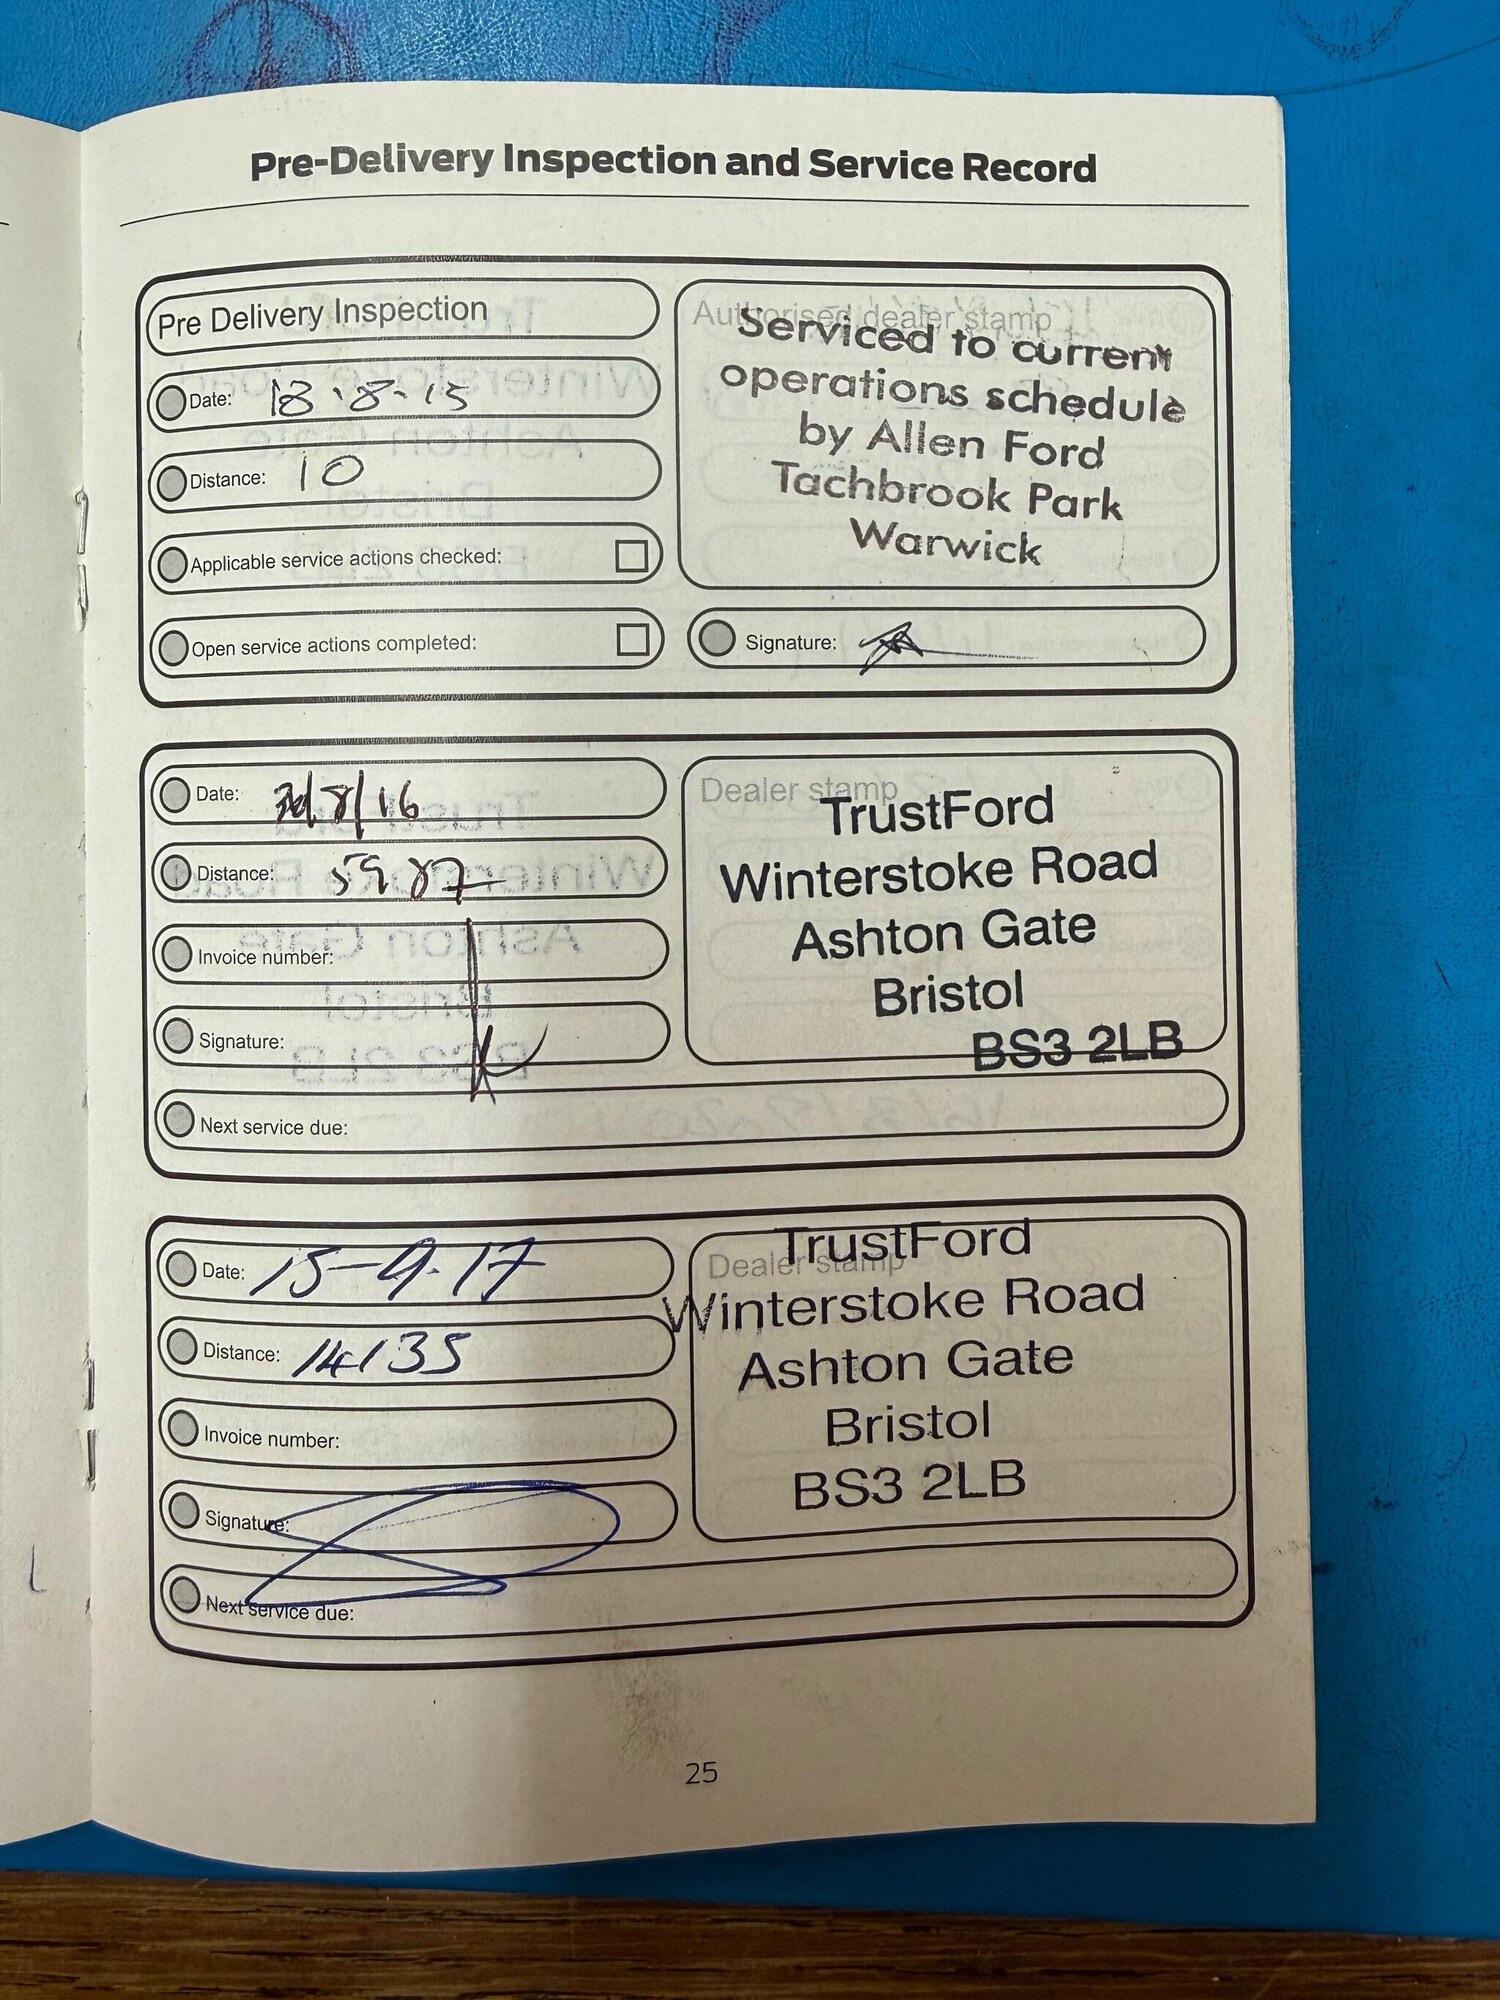 Pre-Delivery Inspection and Service Record
Pre Delivery Inspection
Date: 18.8.15
Distance: 10
Applicable service actions checked:
Open service actions completed:
Authorised dealer stamp
Serviced to current
operations schedule
by Allen Ford
Tachbrook Park
Warwick
Signature:
Date: /8/16
Distance: 5987
Invoice number:
Signature:
Next service due:
Dealer stamp
TrustFord
Winterstoke Road
Ashton Gate
Bristol
BS3 2LB
Date: 15-9-17
Distance: 14135
Invoice number:
Signature:
Next service due:
Dealer stamp
TrustFord
Winterstoke Road
Ashton Gate
Bristol
BS3 2LB
25